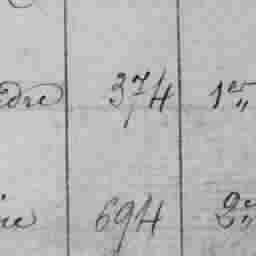 dre 374 1er
re 694 2e